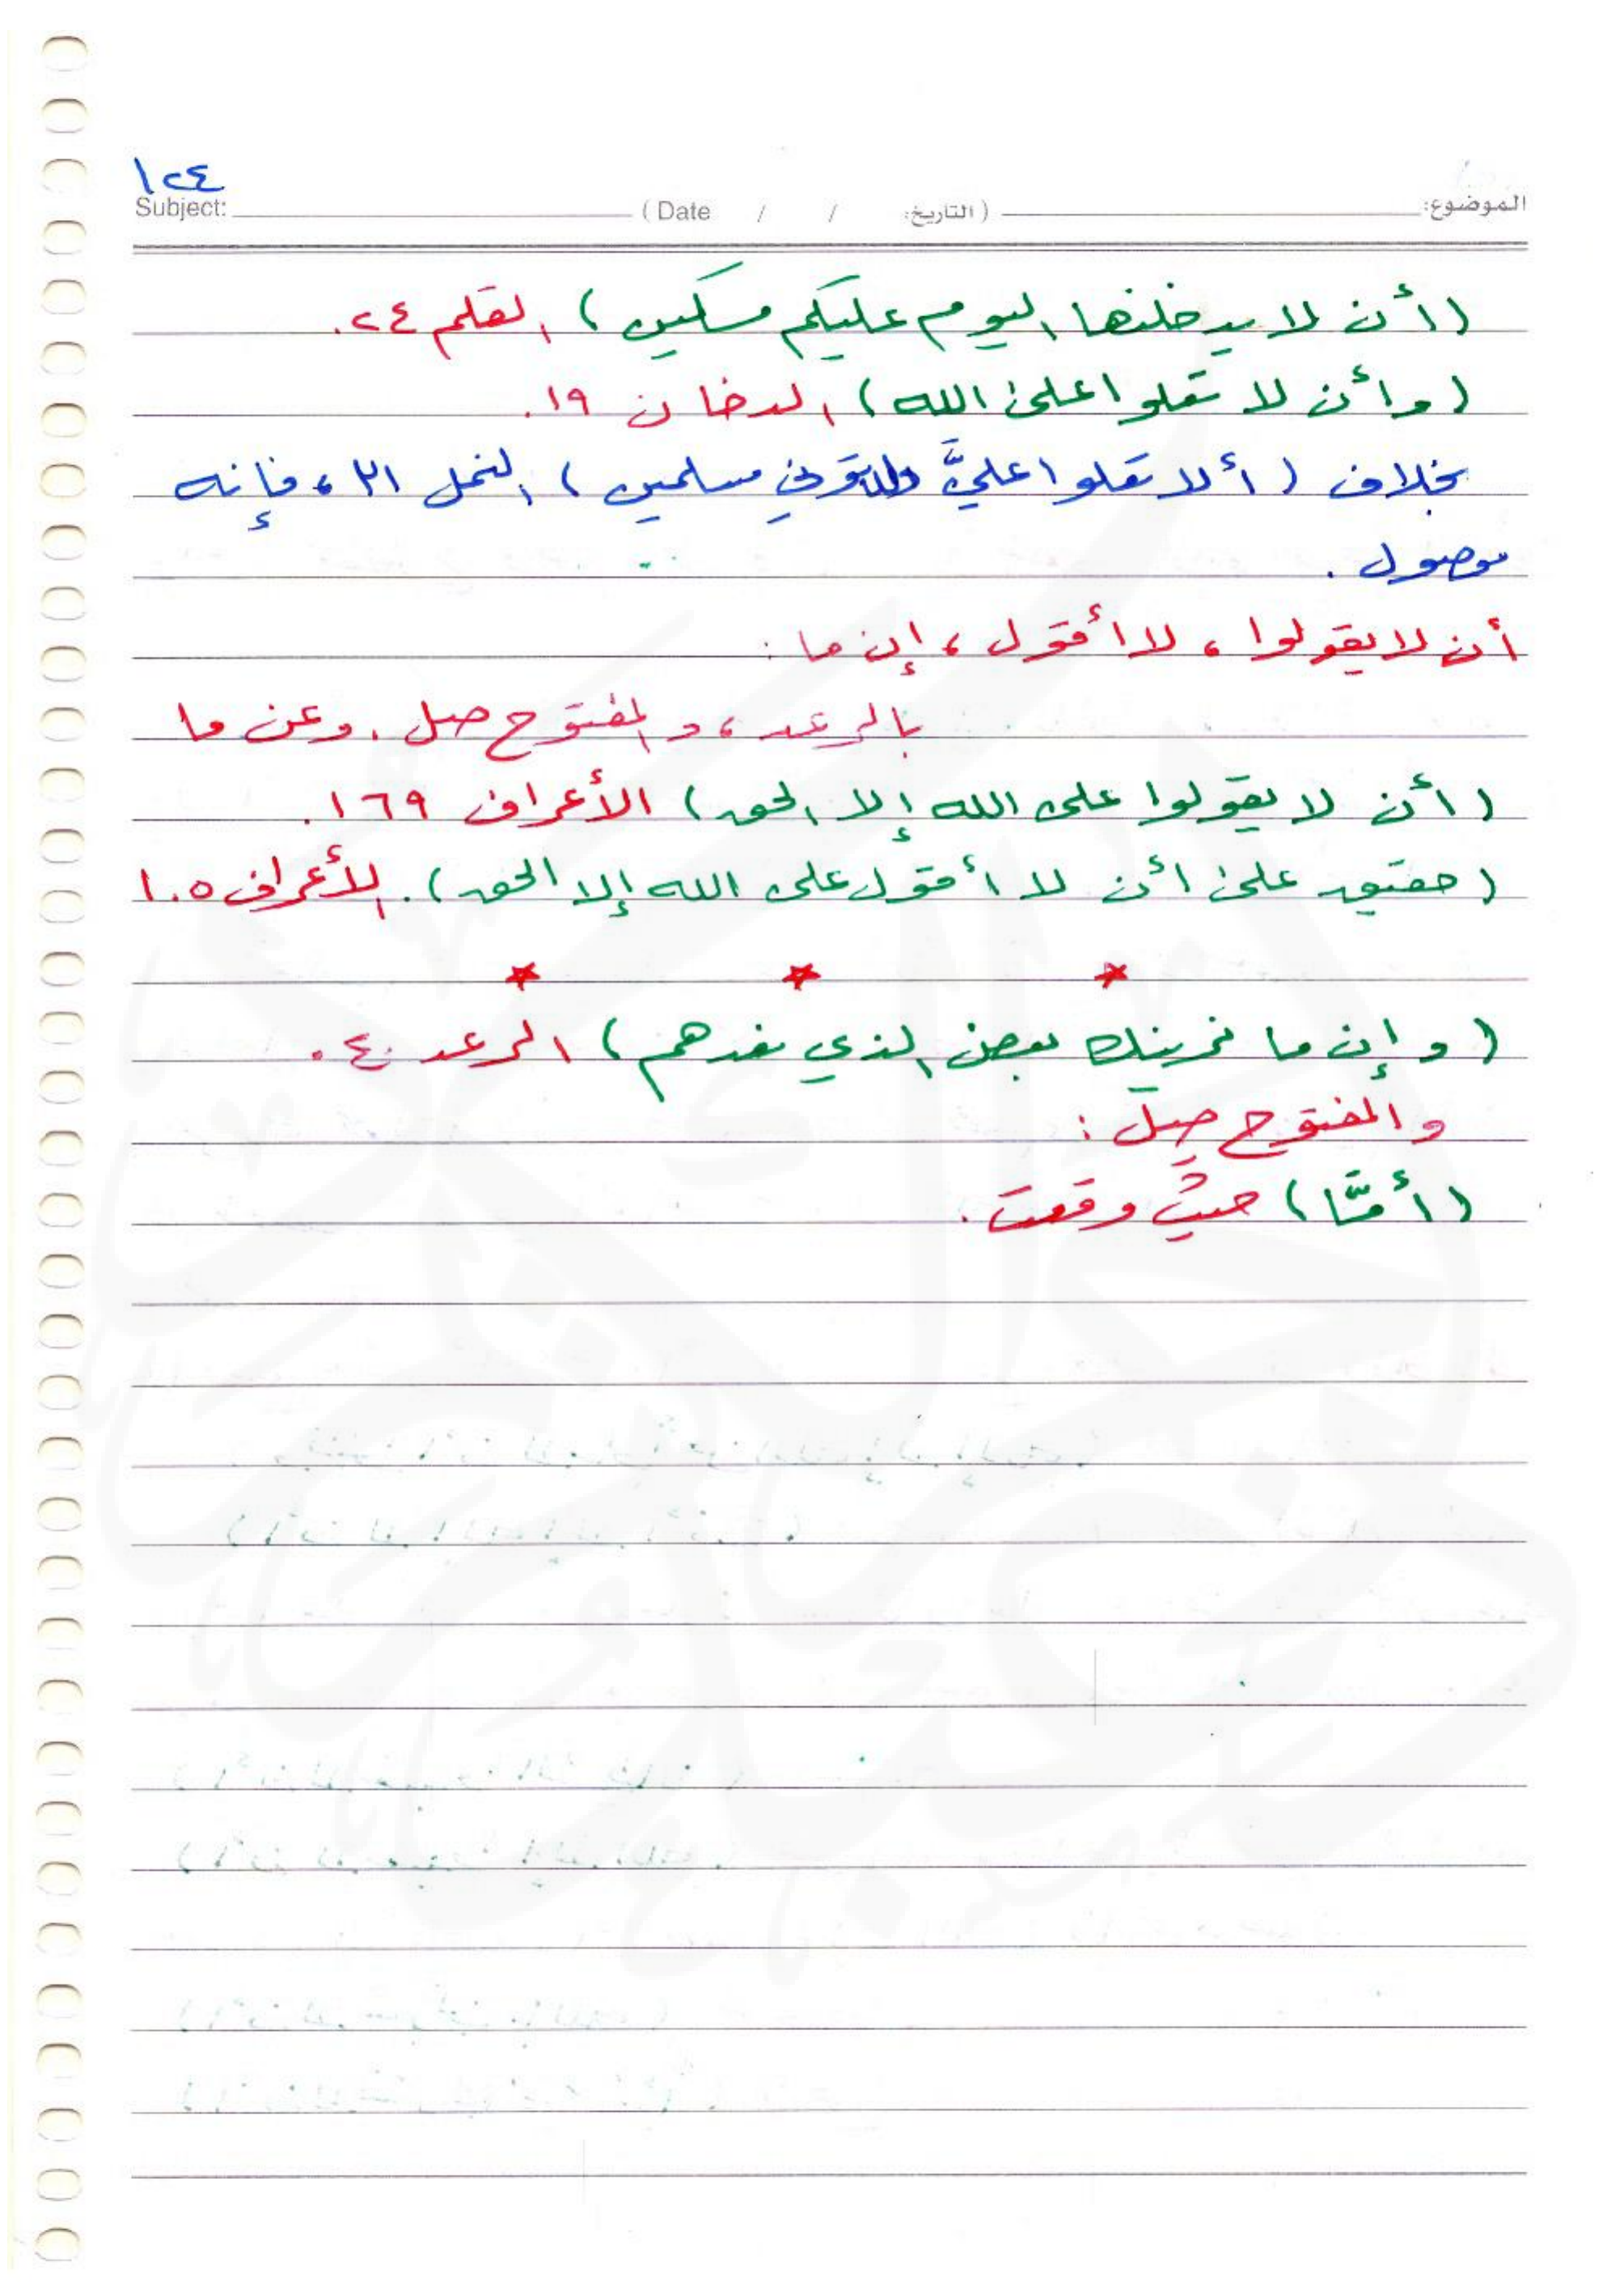 ١٢٤
الموضوع: (التاريخ: / / Date) Subject:
(أن لا يدخلنها اليوم عليكم مسكين) القلم ٢٤.
(وأن لا تعلوا على الله) الدخان ١٩.
بخلاف (ألا تعلوا عليَّ وأتوني مسلمين) النمل ٣١، فإنه
موصول.
أن لا يقولوا، لا أقول، إن ما:
بالرعد، والمفتوح صل. وعن ما
(أن لا يقولوا على الله إلا الحق) الأعراف ١٦٩.
(حقيق على أن لا أقول على الله إلا الحق). الأعراف ١٠٥
* * *
(وإن ما نرينك بعض الذي نعدهم) الرعد ٤٠.
والمفتوح صِل:
(أمَّا) حيثُ وقعت.